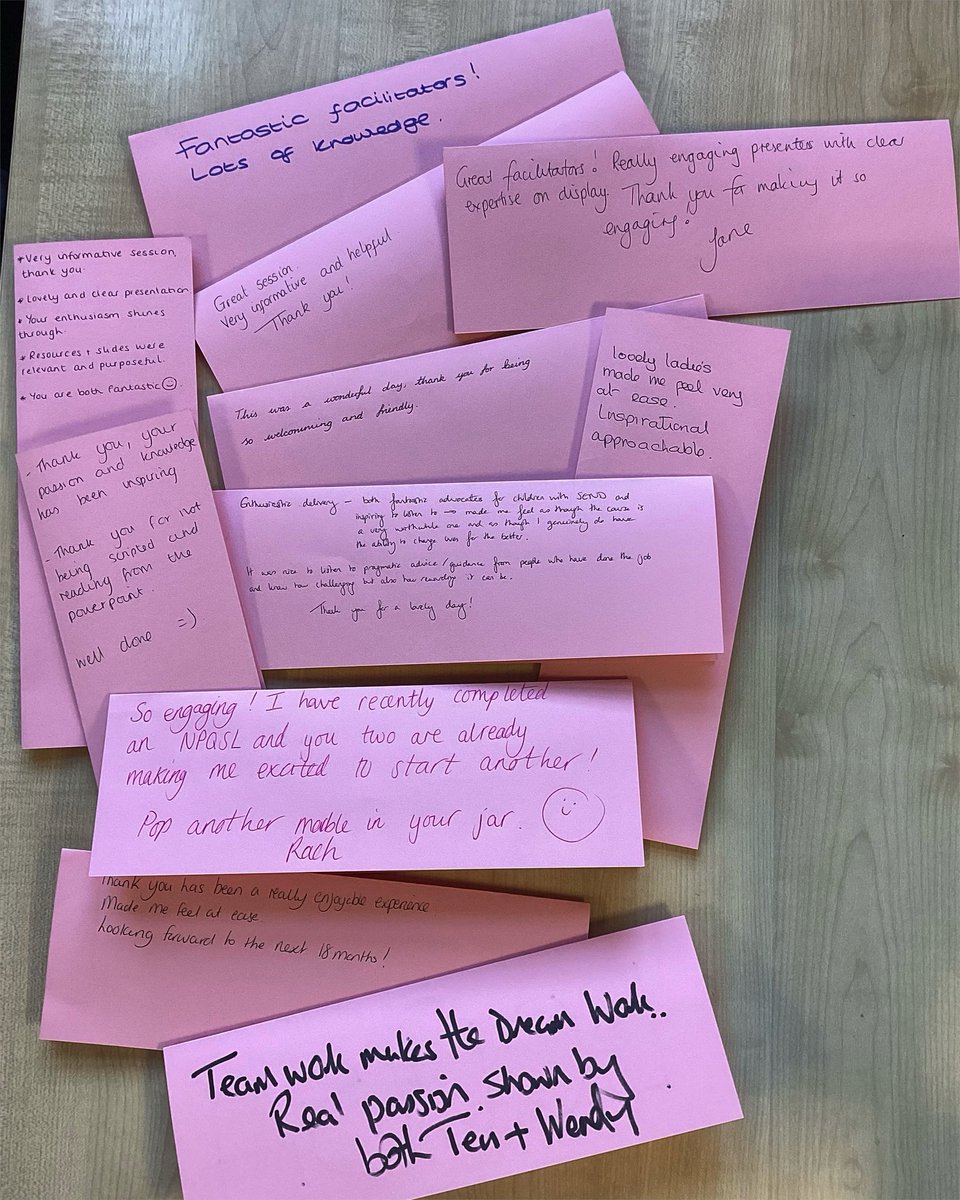 Fantastic facilitators!
Lots of knowledge.
Great facilitators! Really engaging presenters with clear
expertise on display. Thank you for making it so
engaging!
Jane
Great session.
Very informative and helpful.
Thank you!
* Very informative session,
thank you.
* Lovely and clear presentation
* Your enthusiasm shines
through.
* Resources + slides were
relevant and purposeful.
* You are both fantastic ☺
This was a wonderful day, thank you for being
so welcoming and friendly.
lovely ladies
made me feel very
at ease.
Inspirational
approachable.
- Thank you, your
passion and knowledge
has been inspiring
- Thank you for not
being scripted and
reading from the
powerpoint.
well done =)
Enthusiastic delivery – both fantastic advocates for children with SEND and
inspiring to listen to → made me feel as though the course is
a very worthwhile one and as though I genuinely do have
the ability to change lives for the better.
It was nice to listen to pragmatic advice/guidance from people who have done the job
and know how challenging but also how rewarding it can be.
Thank you for a lovely day!
So engaging! I have recently completed
an NPQSL and you two are already
making me excited to start another!
Pop another marble in your jar.
Rach
Thank you has been a really enjoyable experience
Made me feel at ease.
Looking forward to the next 18 months!
Team work makes the Dream Work..
Real passion shown by
both + Wendy